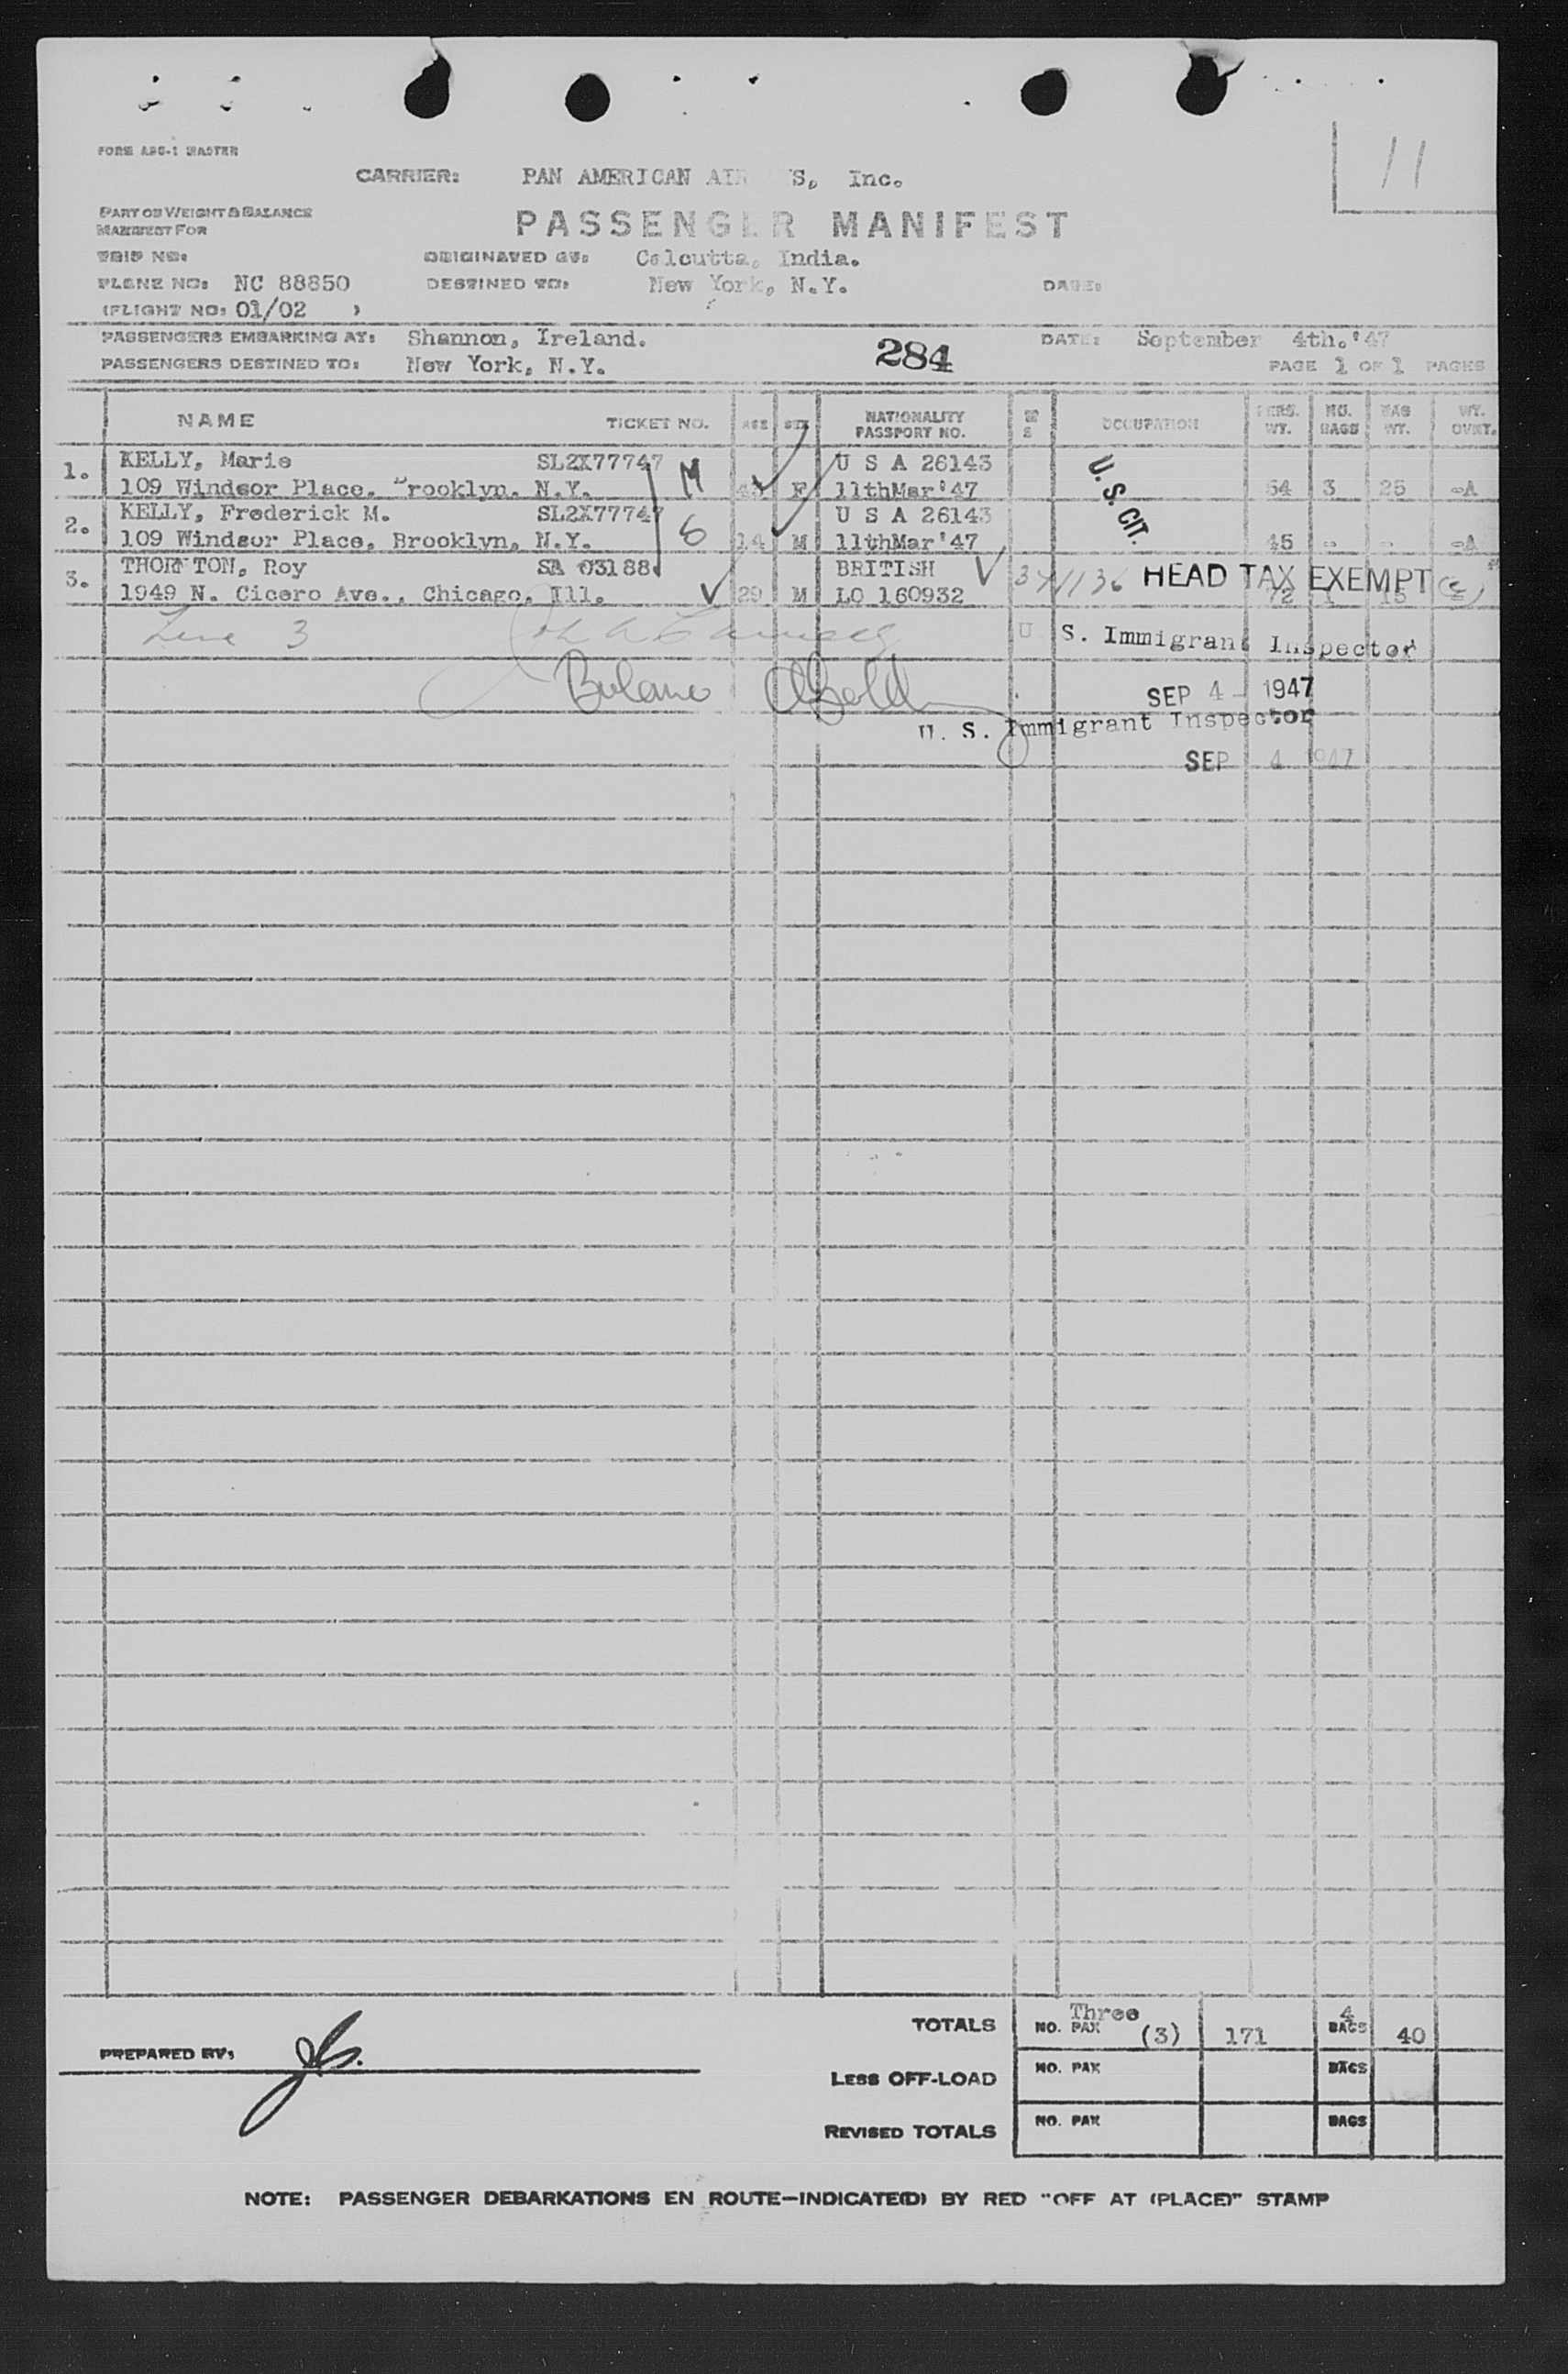 11
FORM ABC-1 MASTER
CARRIER: PAN AMERICAN AIR S, Inc.
PART OF WEIGHT & BALANCE
MANIFEST FOR
PASSENGER MANIFEST
TRIP NO: ORIGINATED AT: Calcutta, India.
PLANE NO: NC 88850 DESTINED TO: New York, N.Y. DATE:
(FLIGHT NO: 01/02 )
PASSENGERS EMBARKING AT: Shannon, Ireland. DATE: September 4th.'47
PASSENGERS DESTINED TO: New York, N.Y. 284 PAGE 1 OF 1 PAGES
NAME TICKET NO. AGE SEX NATIONALITY PASSPORT NO. OCCUPATION PERS. WT. NO. BAGS BAG WT. WT. OVWT.
1. KELLY, Marie SL2X77747 M U S A 26143 U.S. CIT.
109 Windsor Place, Brooklyn, N.Y. F 11thMar'47 54 3 25 -A
2. KELLY, Frederick M. SL2X77747 U S A 26143
109 Windsor Place, Brooklyn, N.Y. 14 M 11thMar'47 45 - - -A
3. THORNTON, Roy SA 03188 BRITISH HEAD TAX EXEMPT
1949 N. Cicero Ave., Chicago, Ill. 29 M LO 160932 72 1 15
Line 3 U. S. Immigrant Inspector
SEP 4 - 1947
U. S. Immigrant Inspector
SEP 4 1947
TOTALS Three NO. PAX (3) 171 4 BAGS 40
PREPARED BY:
LESS OFF-LOAD NO. PAX BAGS
REVISED TOTALS NO. PAX BAGS
NOTE: PASSENGER DEBARKATIONS EN ROUTE—INDICATE(D) BY RED "OFF AT (PLACE)" STAMP